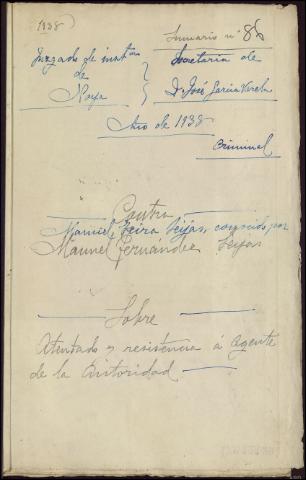 1938
Sumario nº 86
Juzgado de inston
de
Noya
Secretaria de
D. José Garcia Varela
Año de 1938
Criminal
Contra
Manuel Neira Seijas, conocido por
Manuel Fernández Seijas
Sobre
Atentado y resistencia á Agente
de la Autoridad